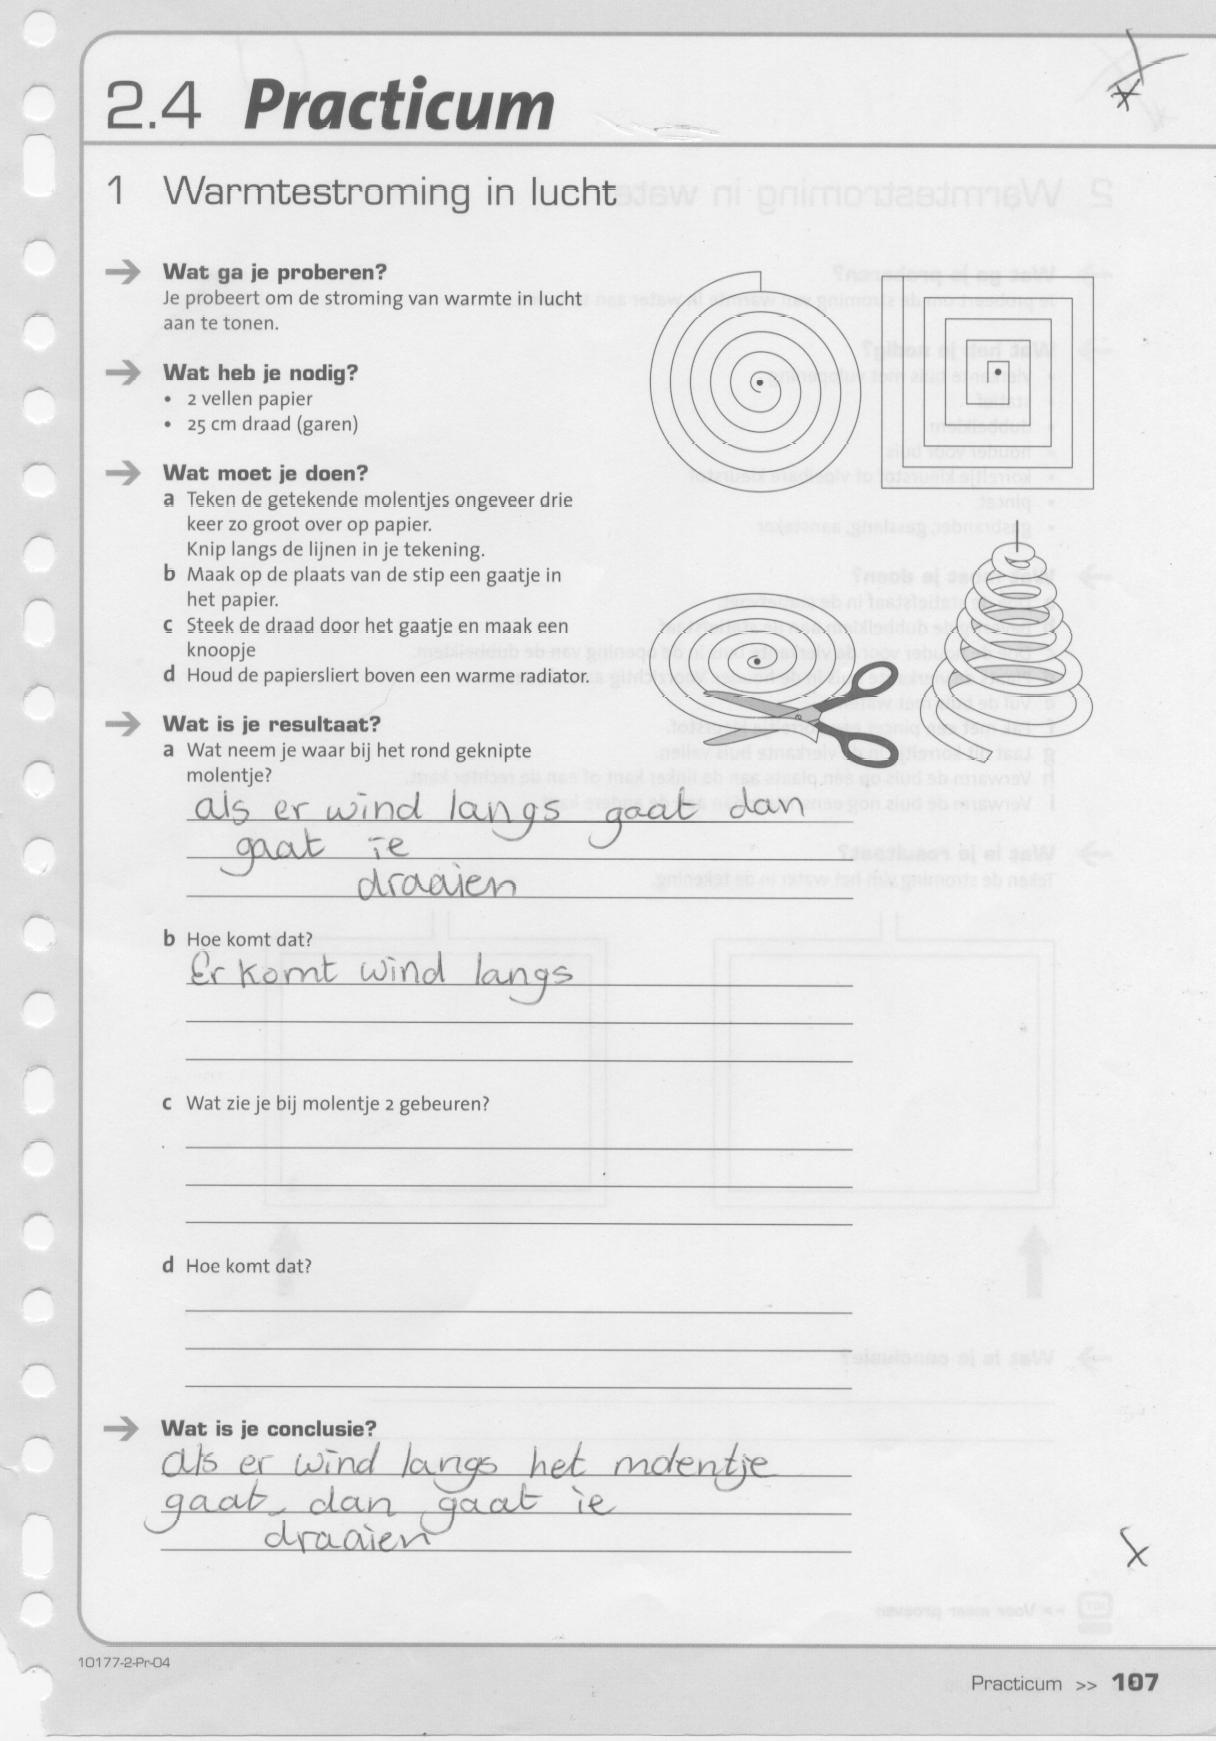 2.4 Practicum
1 Warmtestroming in lucht
Wat ga je proberen?
Je probeert om de stroming van warmte in lucht
aan te tonen.
Wat heb je nodig?
• 2 vellen papier
• 25 cm draad (garen)
Wat moet je doen?
a Teken de getekende molentjes ongeveer drie
keer zo groot over op papier.
Knip langs de lijnen in je tekening.
b Maak op de plaats van de stip een gaatje in
het papier.
c Steek de draad door het gaatje en maak een
knoopje
d Houd de papiersliert boven een warme radiator.
Wat is je resultaat?
a Wat neem je waar bij het rond geknipte
molentje?
als er wind langs gaat dan
gaat ie
draaien
b Hoe komt dat?
Er komt wind langs
c Wat zie je bij molentje 2 gebeuren?
d Hoe komt dat?
Wat is je conclusie?
als er wind langs het molentje
gaat dan gaat ie
draaien
10177-2-Pr-04
Practicum >> 107